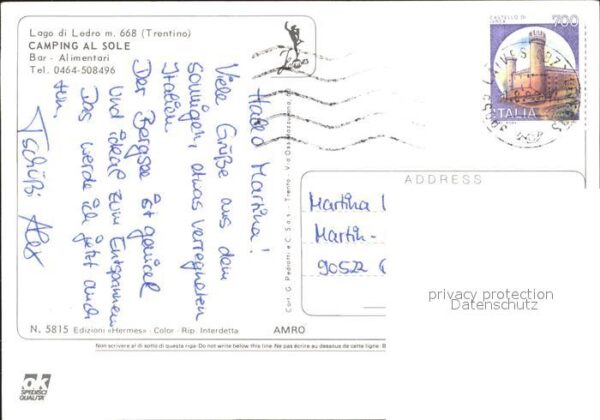 Lago di Ledro m. 668 (Trentino)
CAMPING AL SOLE
Bar - Alimentari
Tel. 0464-508496
Hallo Martina!
Viele Grüße aus dem
sonnigen, etwas verregneten
Italien
Der Bergsee ist genial
und ideal zum Entspannen
Das werde ich jetzt auch
tun,
Tschüßi Alex
CASTELLO DI
IVREA
700
ITALIA
ADDRESS
Martina
Martin-
90522
privacy protection
Datenschutz
N. 5815 Edizioni «Hermes» - Color - Rip. Interdetta
AMRO
Non scrivere al di sotto di questa riga - Do not write below this line - Ne pas écrire au dessous de cette ligne
ok
SPEDISCI
QUALITÀ